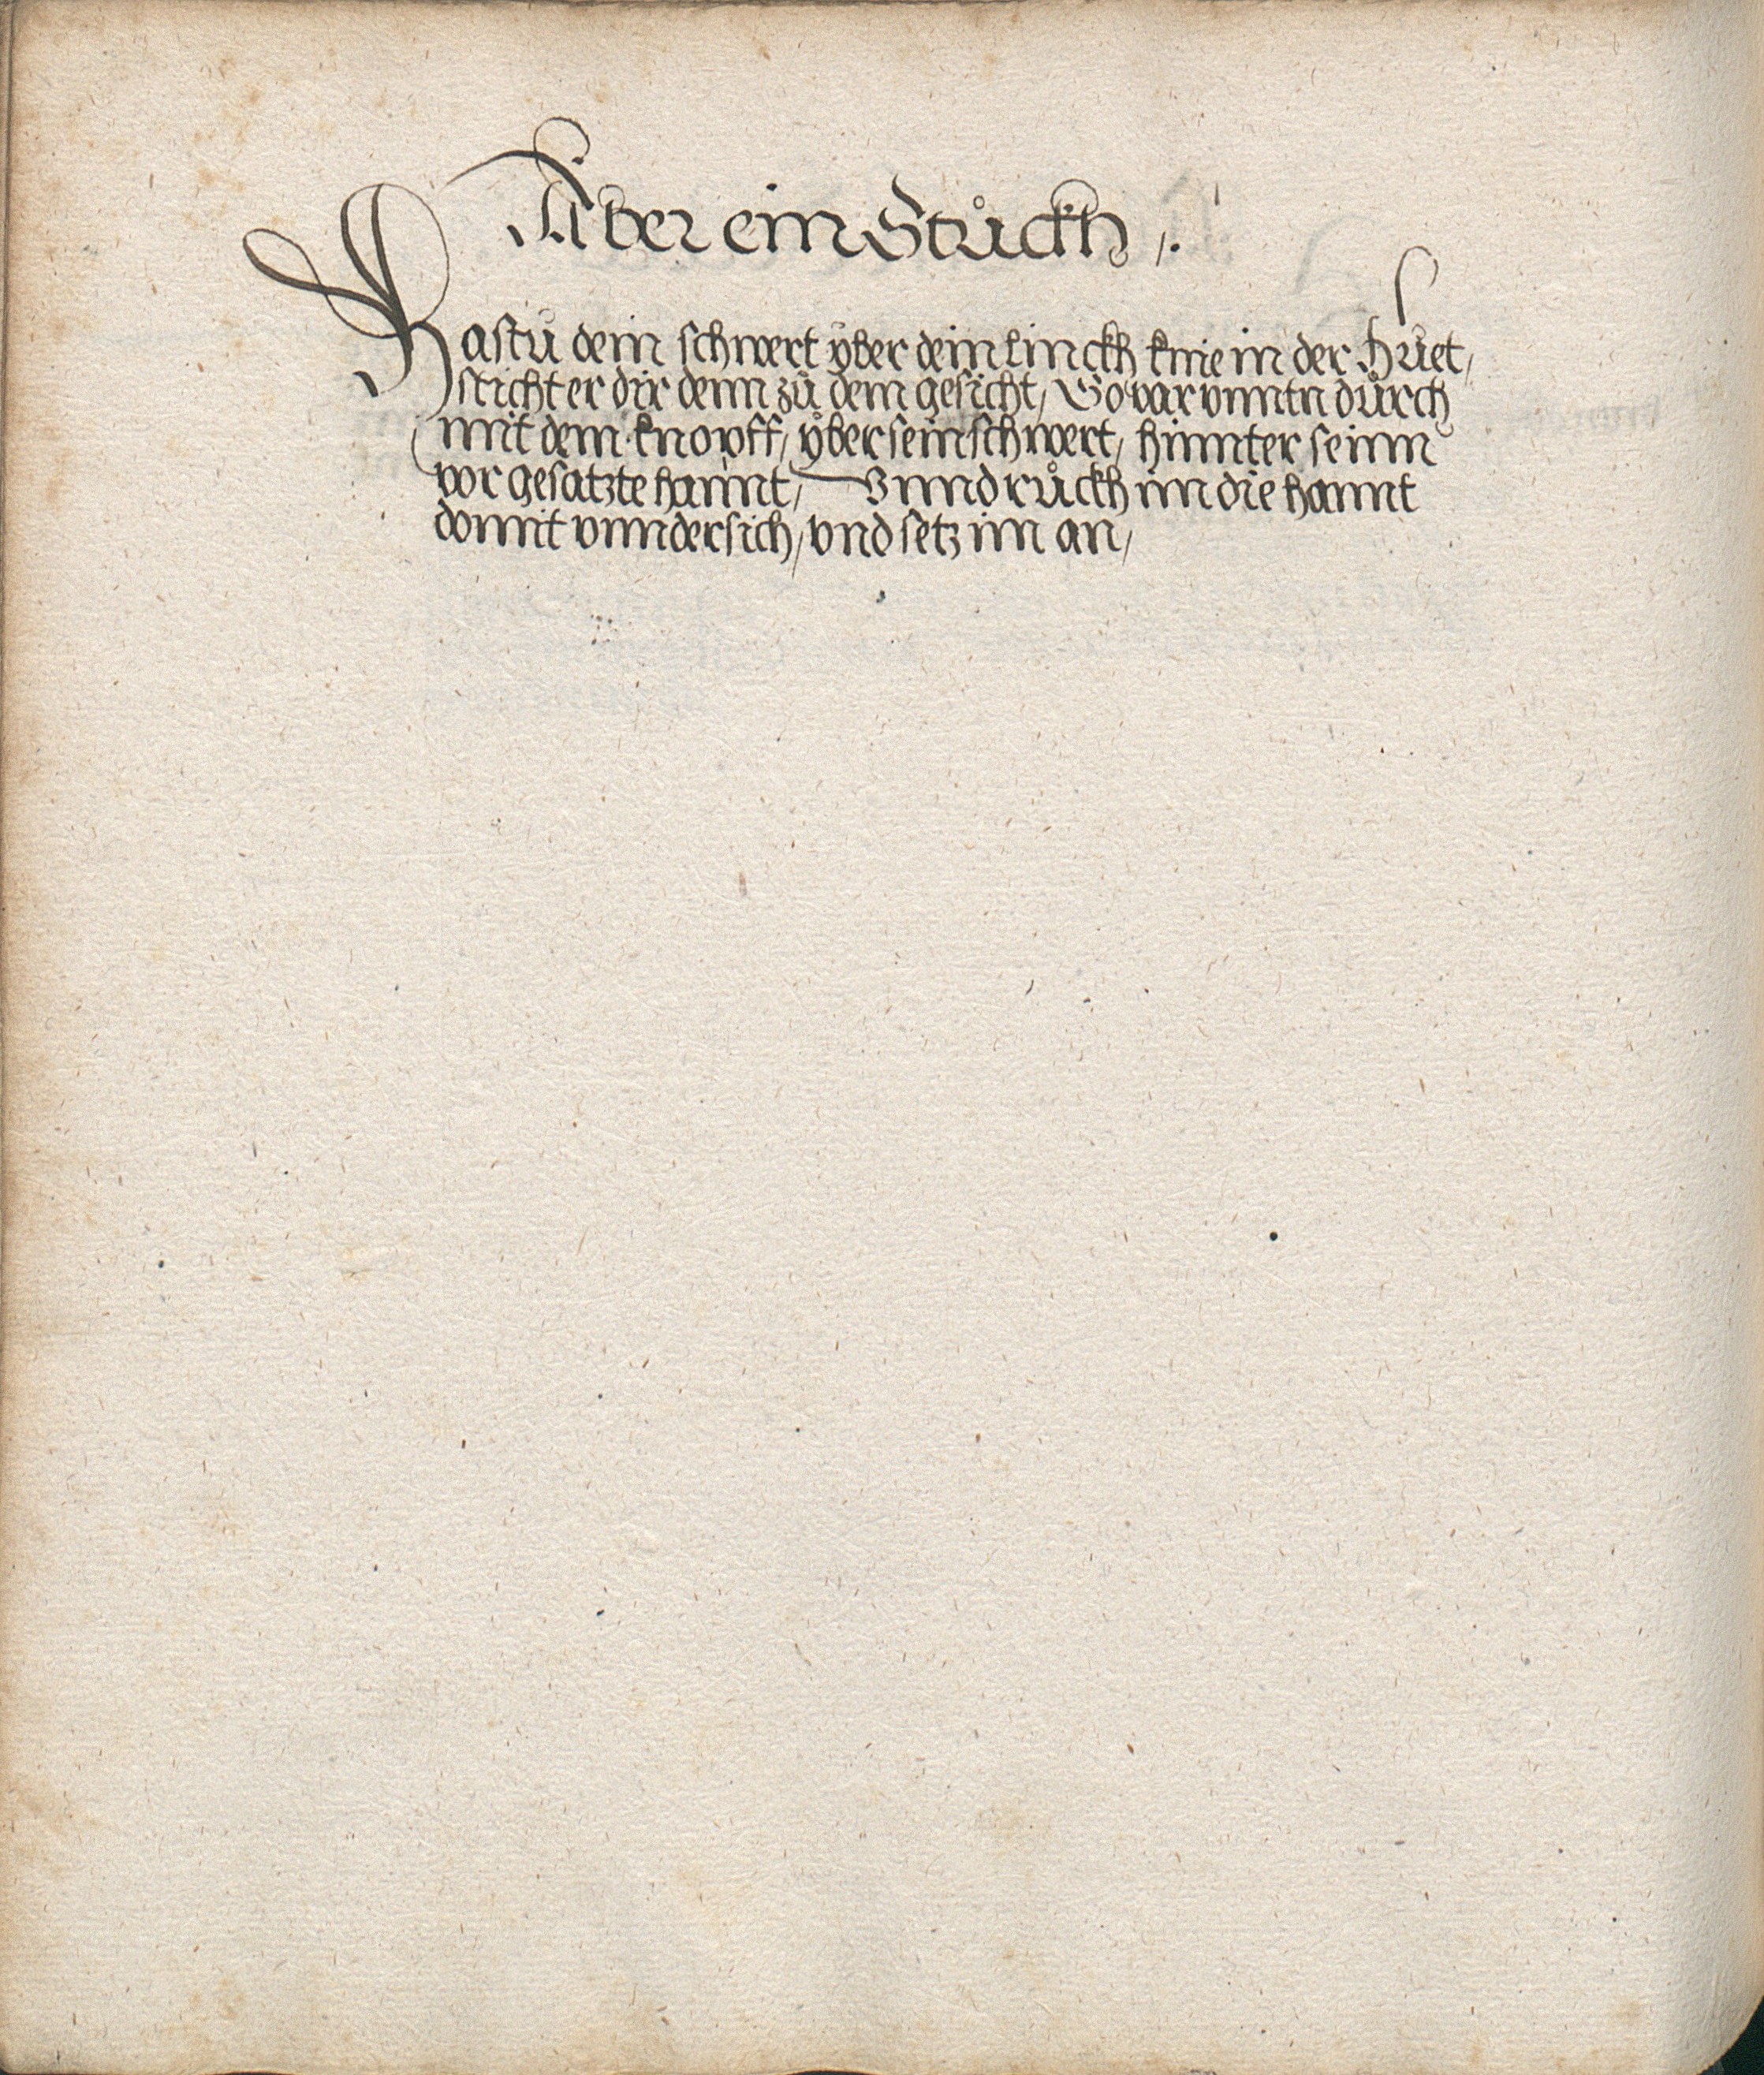 Aber ein Stůckh ⸝.
Hastů dein schwert ÿber dein linckh knie in der Hůet,
sticht er dir denn zů dem gesicht, So var vnntn důrch
mit dem knopff, ÿber sein schwert, hinnter seinn
vor gesatzte hannt, Vnnd růckh im die hannt
domit vnndersich, vnd setz im an,